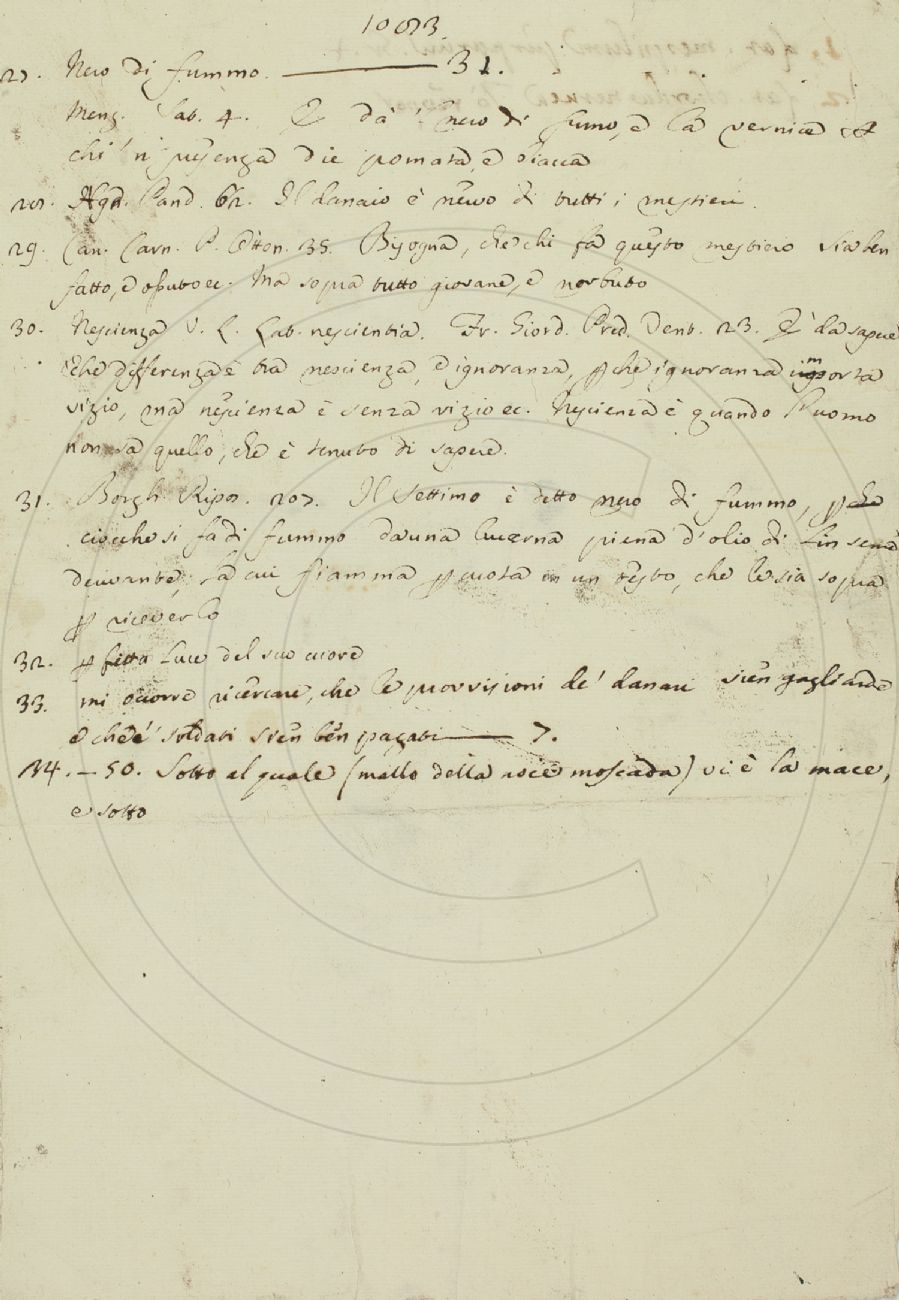 27. Nero di fummo. ——— 31.
Menz. Sat. 4. E dà 'l nero di fumo, e la vernice
chi 'n presenza die pomata, e biacca
28. Agn. Pand. 62. Il danaio è nervo di tutti i mestieri.
29. Can. Carn. P. Otton. 35. Bisogna, che chi fa questo mestiero sia ben
fatto, e ec. Ma sopra tutto giovane, e norbuto
30. Nescienza V. L. Lat. nescientia. Fr. Giord. Pred. 23. E' da sapere
che differenza è tra nescienza, e ignoranza, pche ignoranza importa
vizio, ma nescienza è senza vizio ec. Nescienza è quando l'uomo
non sa quello, che è tenuto di sapere.
31. Borgh. Ripos. 207. Il settimo è detto nero di fummo, pche
ciocchè si fa di fummo da una lucerna piena d'olio di Lin seme
, la cui fiamma pcuota in un testo, che le sia sopra
p riceverlo
32. pfetta luce del suo cuore
33. mi occorre ricercare, che le provvisioni de' danari sien gagliarde
e che e' soldati sien ben pagati ——— 7.
34. – 50. Sotto al quale (mallo della noce moscada) vi è la mace,
e sotto